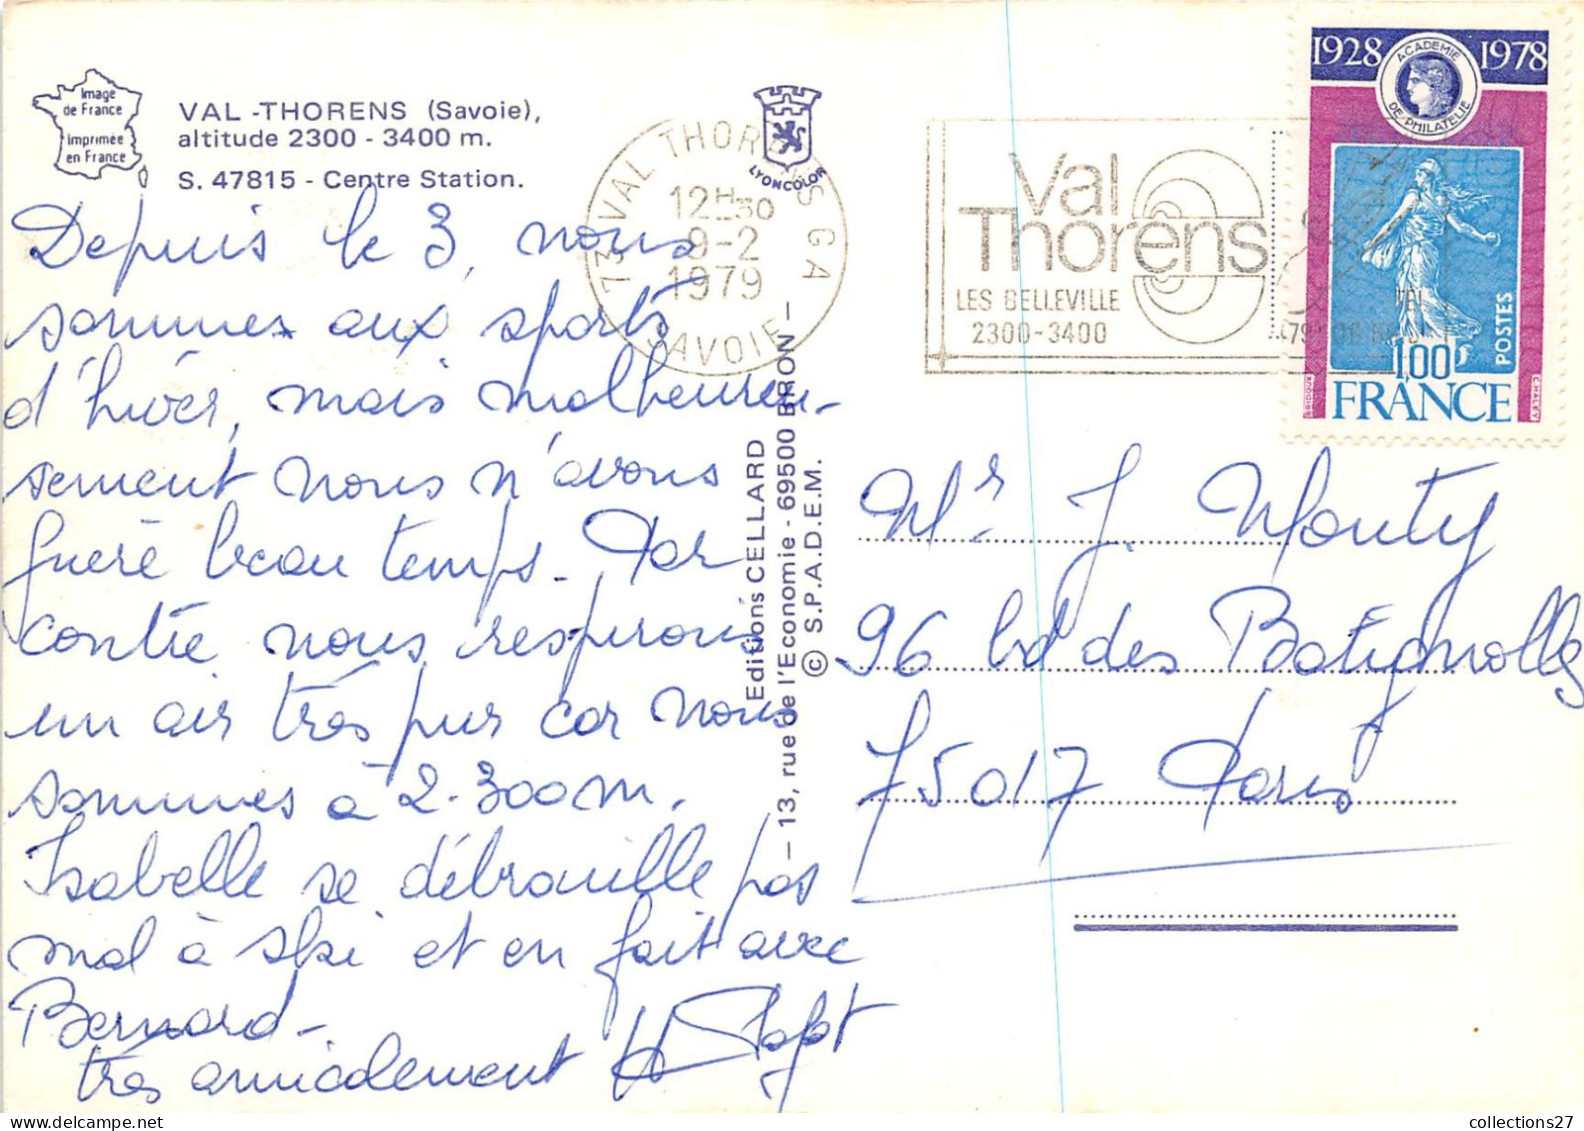 Image
de France
Imprimée
en France
VAL -THORENS (Savoie),
altitude 2300 - 3400 m.
S. 47815 - Centre Station.
LYONCOLOR
73 VAL THORENS GA
12H30
9-2
1979
SAVOIE
Val
Thorens
LES BELLEVILLE
2300-3400
1928
ACADEMIE
DE PHILATELIE
1978
POSTES
1,00
FRANCE
Depuis le 3, nous
sommes aux sports
d'hiver, mais malheureu-
sement nous n'avons
guère beau temps. Par
contre nous respirons
un air très pur car nous
sommes à 2.300m.
Isabelle se débrouille pas
mal à ski et en fait avec
Bernard.
très amicalement
Editions CELLARD
— 13, rue de l'Economie - 69500 BRON —
© S.P.A.D.E.M.
Mr J. Mouty
96 bd des Batignolles
75017 Paris
collections27